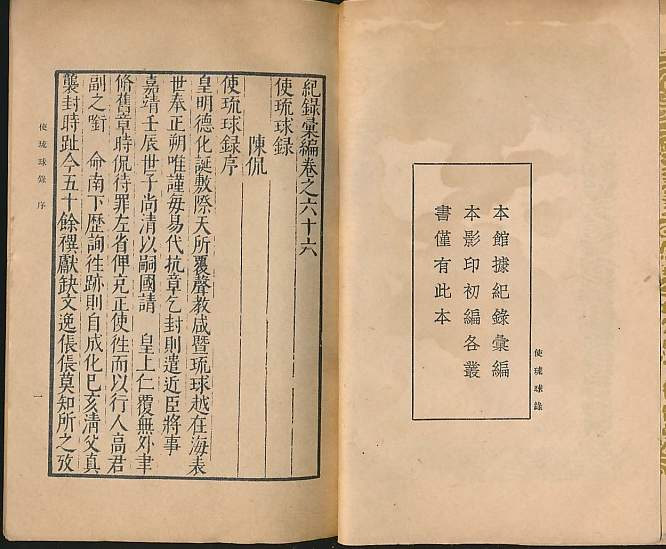 本館據紀錄彙編
本影印初編各叢
書僅有此本
使琉球錄
紀錄彙編卷之六十六
使琉球録
陳侃
使琉球録序
皇明德化誕敷際天所覆聲教咸曁琉球越在海表
世奉正朔唯謹毎易代抗章乞封則遣近臣將事
嘉靖壬辰世子尚清以嗣國請 皇上仁覆無外聿
脩舊章時侃待罪左省俾充正使徃而以行人高君
副之銜 命南下歴詢徃跡則自成化巳亥淸父真
襲封時距今五十餘禩獻缺文逸倀倀莫知所之攷
使琉球錄 序
一